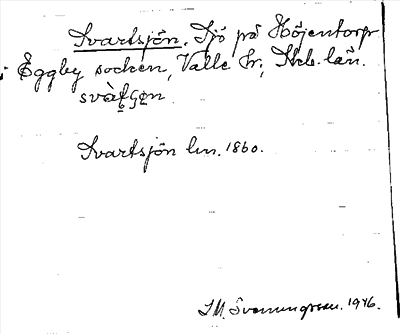 Svartsjön. Sjö på Höjentorp
i Eggby socken, Valle hr, Skb. län.
Svartsjön lm. 1860.
S.M. Svenungsson. 1946.